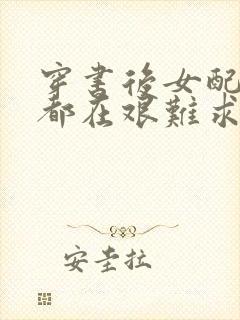 穿書後女配
都在艱難求
安圭拉